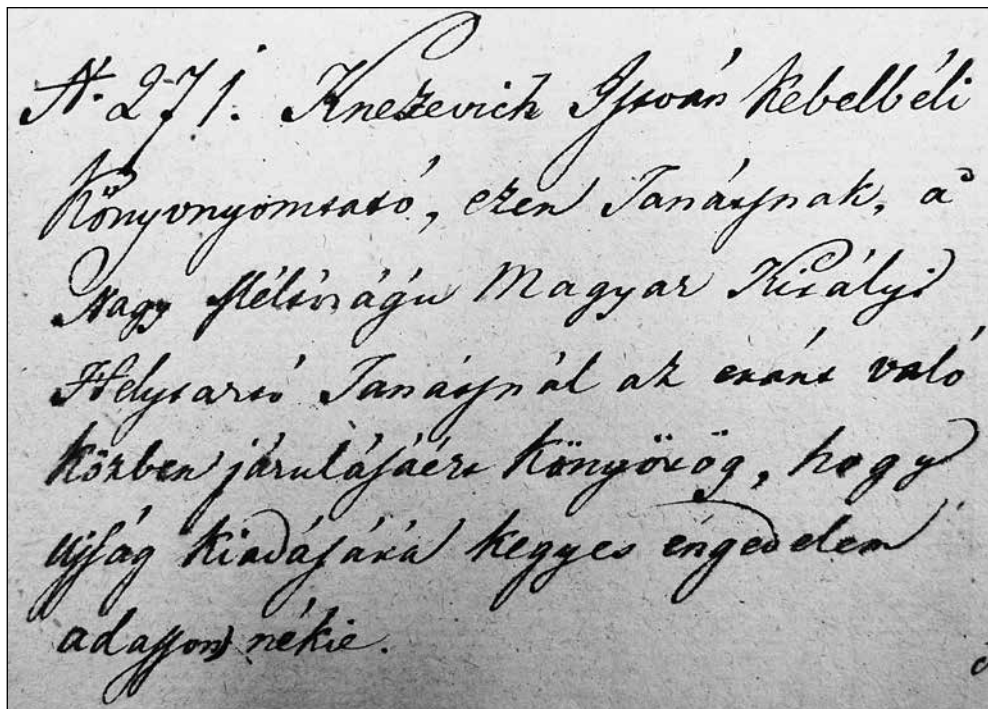 N. 271. Knezevich István kebelbéli
Könyvnyomtató, ezen Tanátsnak, a'
Nagy Méltóságu Magyar Királyi
Helytartó Tanátsnál az eránt való
közben járulásáért könyörög, hogy
ujság kiadására kegyes engedelem
adasson nékie.